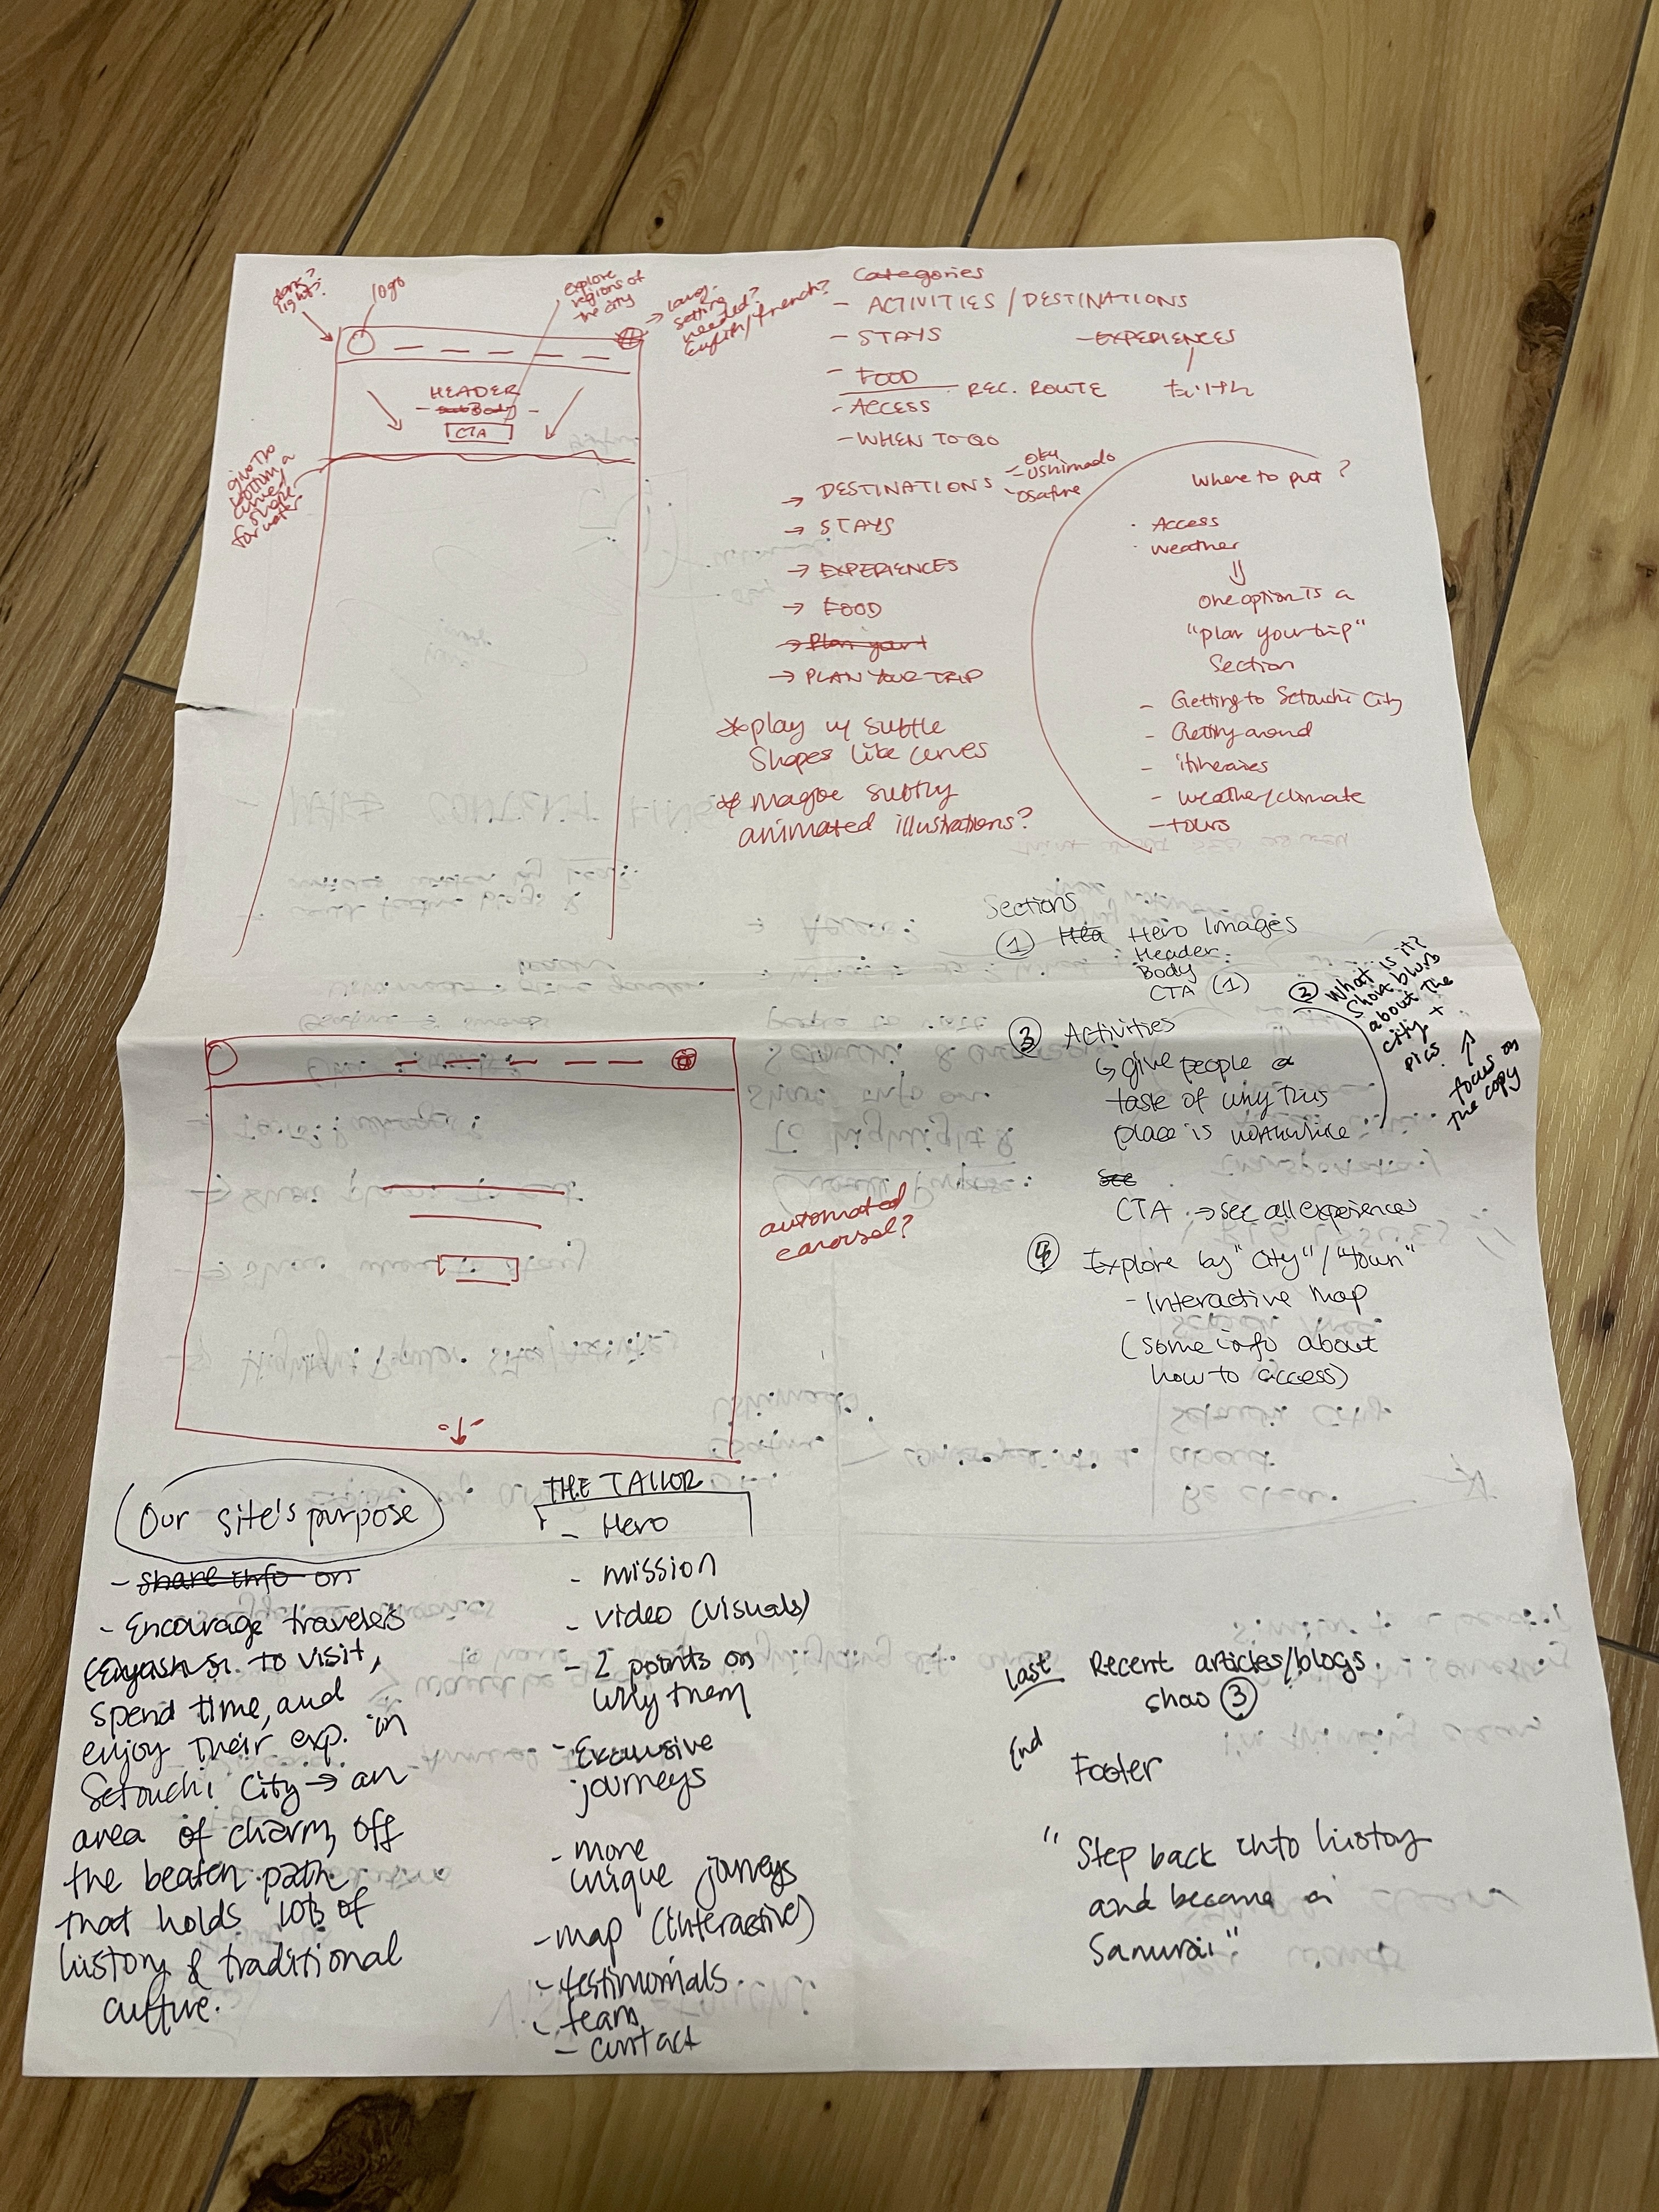 dark?
light?
logo
explore
regions of
the city
lang.
setting
needed?
English/French?
HEADER
CTA
give the
bottom a
curved
shape
for water
Categories
- ACTIVITIES / DESTINATIONS
- STAYS
- EXPERIENCES
- FOOD
- REC. ROUTE
- ACCESS
- WHEN TO GO
→ DESTINATIONS
- Oku
- Ushimado
- Osafune
→ STAYS
→ EXPERIENCES
→ FOOD
→ Plan your t
→ PLAN YOUR TRIP
* play w/ subtle
shapes like curves
* Maybe subtly
animated illustrations?
Where to put?
· Access
· weather
⇓
One option is a
"plan your trip"
Section
- Getting to Setouchi City
- Getting around
- itineraries
- weather/climate
- tours
Sections
① Hea Hero Images
Header
Body
CTA (1)
② What is it?
Short blurb
about the
city +
pics
↑
focus on
the copy
③ Activities
↳ give people a
taste of why this
place is worthwhile
See
CTA → see all experiences
④ Explore by "City"/"town"
- Interactive map
(some info about
how to access)
automated
carousel?
Our site's purpose
- share info on
- Encourage travelers
to visit,
spend time, and
enjoy their exp. in
Setouchi City → an
area of charm, off
the beaten path
that holds lots of
history & traditional
culture.
THE TAILOR
- Hero
- mission
- video (visuals)
- 2 points on
why them
- Exclusive
journeys
- more
unique journeys
- map (interactive)
- testimonials
- team
- contact
Last Recent articles/blogs
show ③
End Footer
"Step back into history
and become a
Samurai"